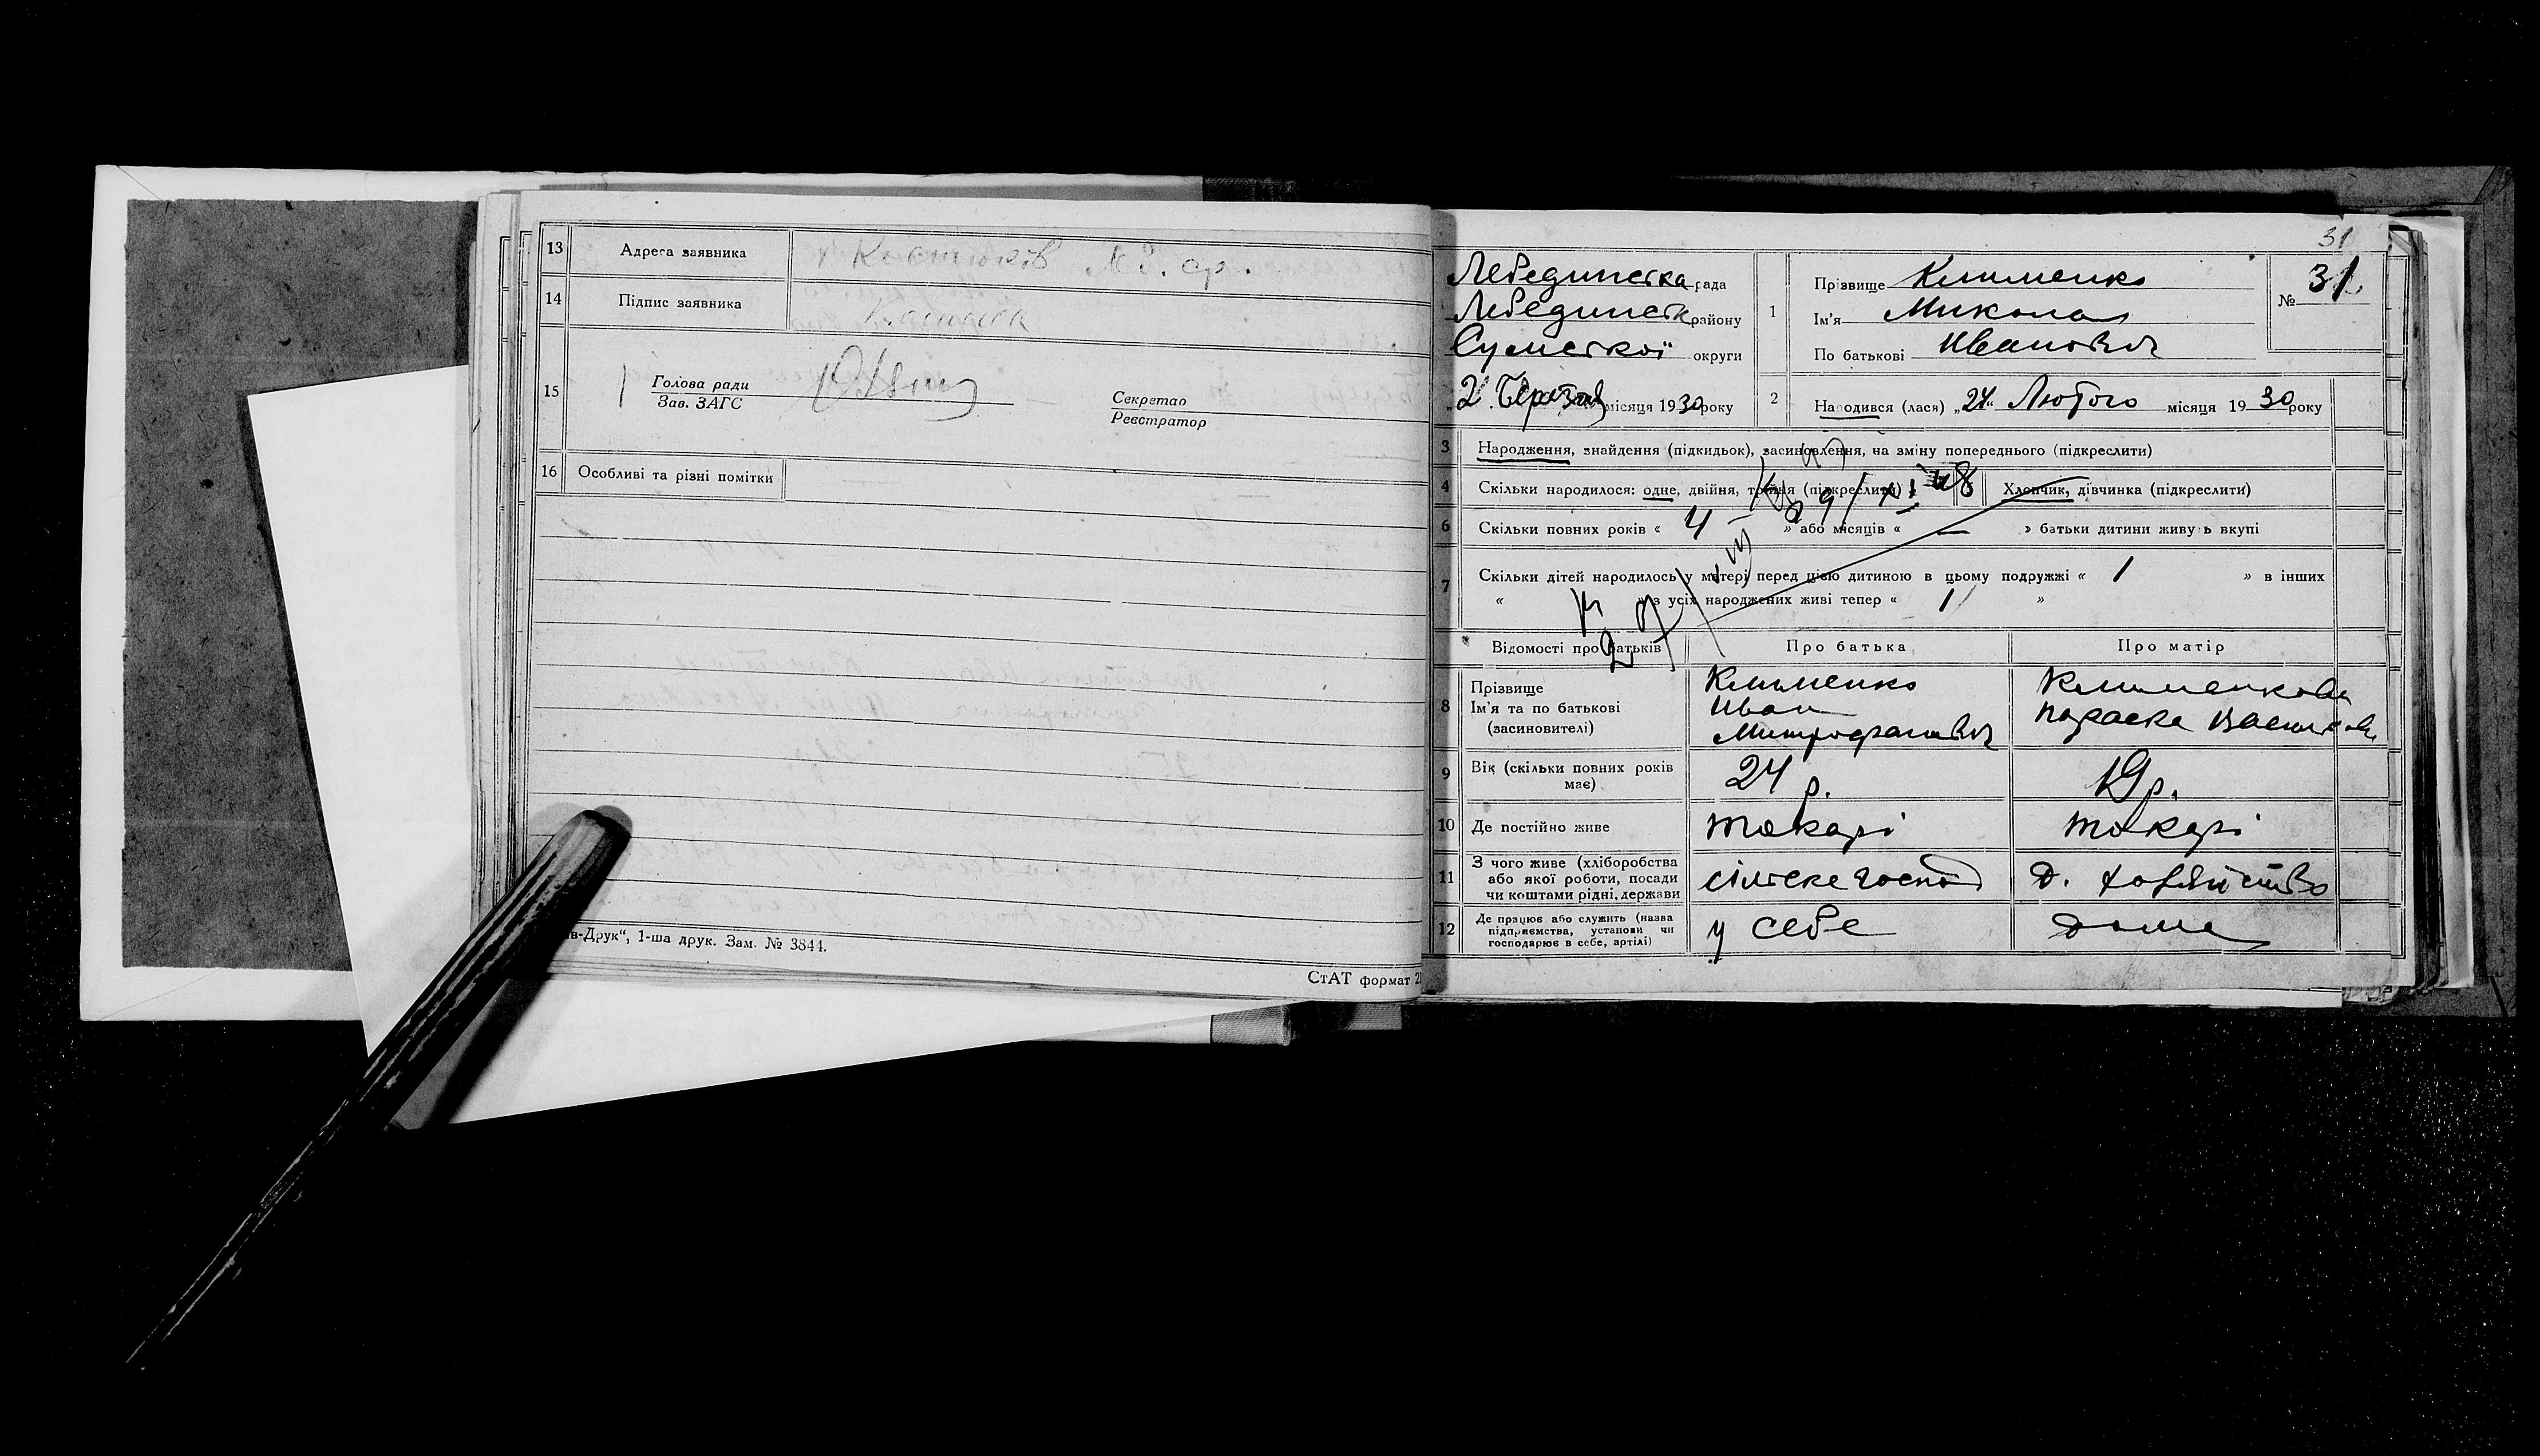 13 Адреса заявника
14 Підпис заявника
15 Голова ради
Зав. ЗАГС
Секретар
Реєстратор
16 Особливі та різні помітки
в-Друк“, 1-ша друк. Зам. № 3844.
СтАТ формат
31
Лебединська рада
Лебединськ району
Сумської округи
„2. Березня місяця 1930 року
1 Прізвище Клименко
Ім'я Микола
По батькові Иванович
№ 31.
2 Народився (лася) „24“ Лютого місяця 1930 року
3 Народження, знайдення (підкидьок), засиновлення, на зміну попереднього (підкреслити)
4 Скільки народилося: одне, двійня, тройня (підкреслити) Хлопчик, дівчинка (підкреслити)
6 Скільки повних років « 4 » або місяців « — » батьки дитини живуть вкупі
7 Скільки дітей народилось у матері перед цією дитиною в цьому подружжі « 1 » в інших
« » з усіх народжених живі тепер « 1 »
Відомості про батьків Про батька Про матір
8 Прізвище
Ім'я та по батькові
(засиновителі)
Клименко
Иван
Митрофанович
Клименкова
Параска
9 Вік (скільки повних років має) 24 р. 19 р.
10 Де постійно живе Токарі Токарі
11 З чого живе (хліборобства
або якої роботи, посади
чи коштами рідні, держави
сільске господ
Д. хозяйство
12 Де працює або служить (назва
підприємства, установи чи
господарює в себе, артілі)
у себе
дома